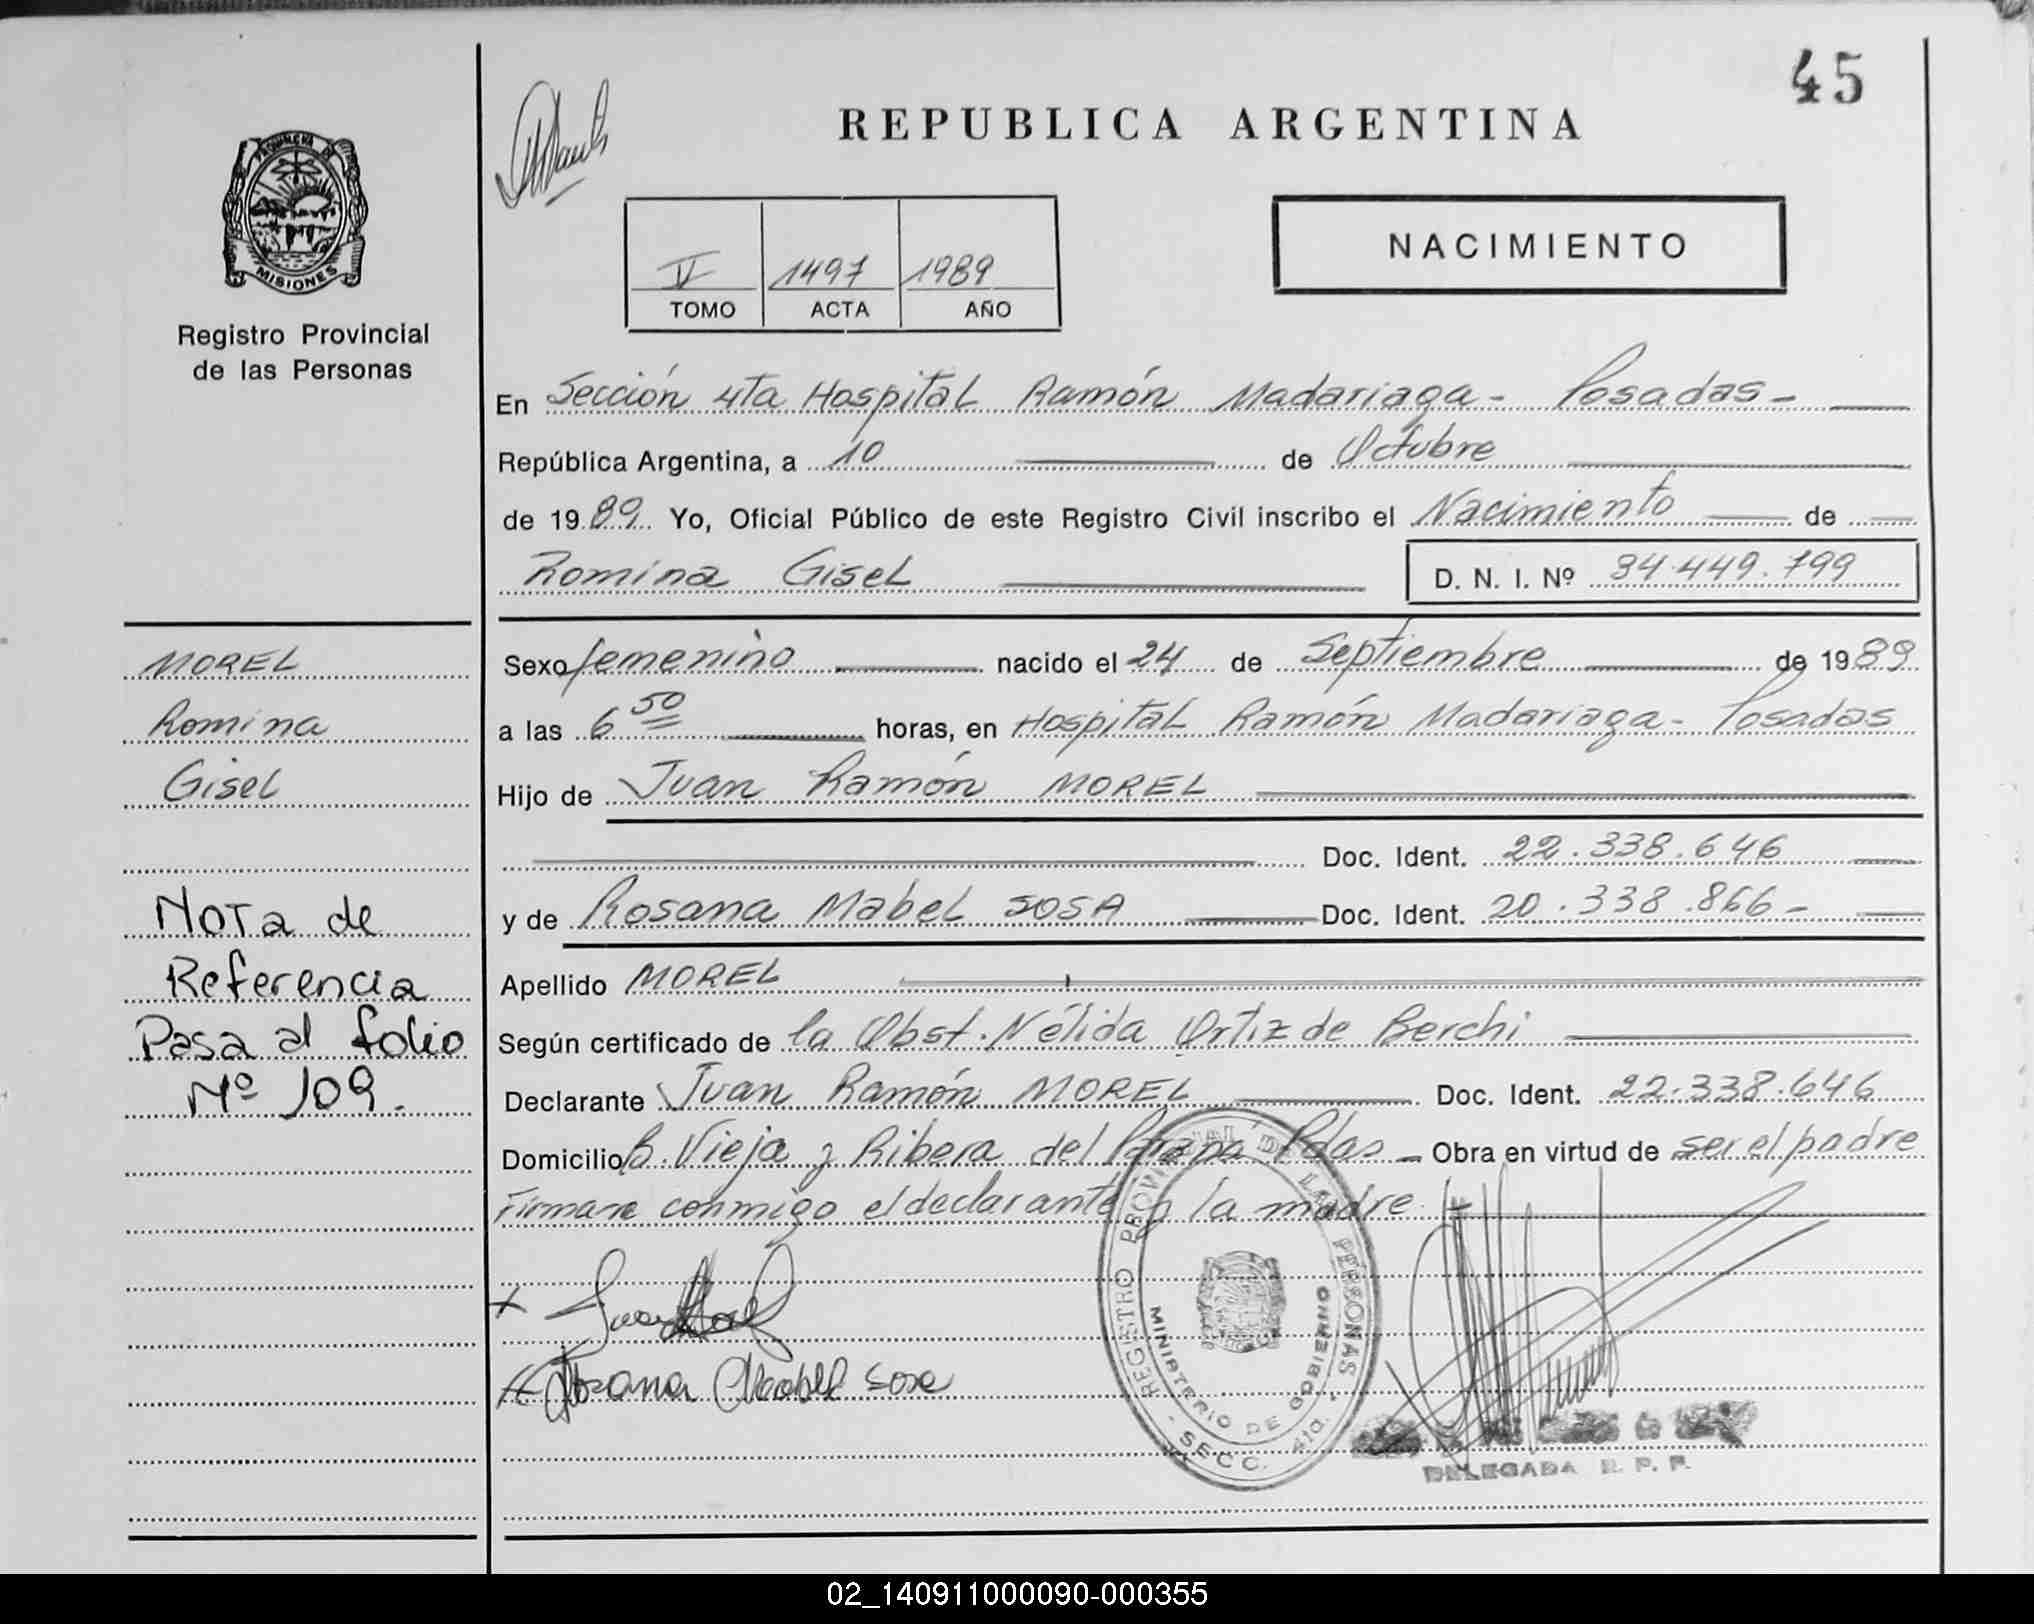 45
REPUBLICA ARGENTINA
PROVINCIA DE
MISIONES
Registro Provincial
de las Personas
V 1497 1989
TOMO ACTA AÑO
NACIMIENTO
En Sección 4ta Hospital Ramón Madariaga - Posadas -
República Argentina, a 10 de Octubre
de 1989 Yo, Oficial Público de este Registro Civil inscribo el Nacimiento de
Romina Gisel D. N. I. Nº 34.449.799
MOREL
Romina
Gisel
Nota de
Referencia
Pasa al folio
Nº 109.
Sexo femenino nacido el 24 de Septiembre de 1989
a las 6 50 horas, en Hospital Ramón Madariaga - Posadas
Hijo de Juan Ramón MOREL
Doc. Ident. 22.338.646
y de Rosana Mabel SOSA Doc. Ident. 20.338.866 -
Apellido MOREL
Según certificado de la Obst. Nélida Ortiz de Berchi
Declarante Juan Ramón MOREL Doc. Ident. 22.338.646
Domicilio B. Vieja y Ribera del Paraná Pdas - Obra en virtud de ser el padre
Firman conmigo el declarante y la madre
Rosana Mabel Sosa
REGISTRO PROVINCIAL DE LAS PERSONAS
MINISTERIO DE GOBIERNO
- SECC. 4ta. -
DELEGADA R. P. P.
02_140911000090-000355